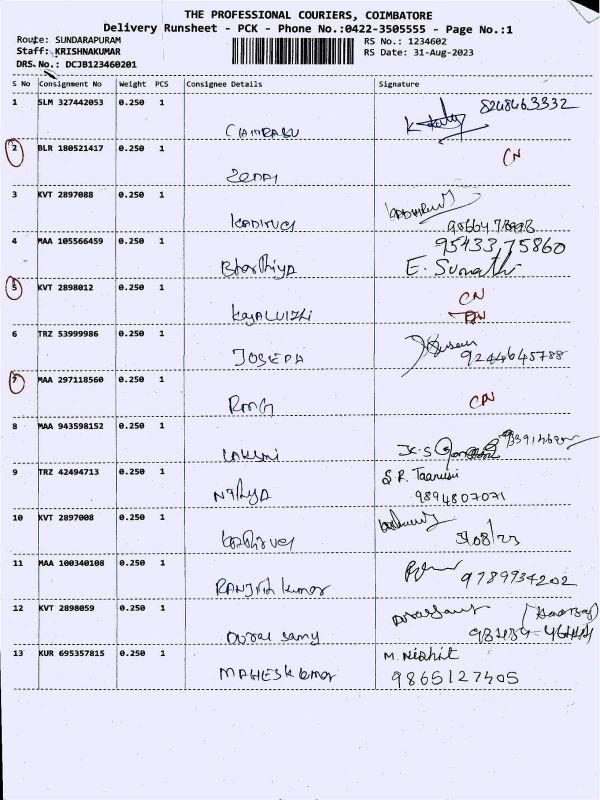 THE PROFESSIONAL COURIERS, COIMBATORE
Delivery Runsheet - PCK - Phone No.:0422-3505555 - Page No.:1
Route: SUNDARAPURAM
RS No.: 1234602
Staff: KRISHNAKUMAR
RS Date: 31-Aug-2023
DRS No.: DCJB123460201
S No Consignment No Weight PCS Consignee Details Signature
1 SLM 327442053 0.250 1
8248463332
2 BLR 180521417 0.250 1
CN
3 KVT 2897088 0.250 1
KADIRVEL
4 MAA 105566459 0.250 1
95433 75860
Bharthiya E. Sumathi
5 KVT 2898012 0.250 1
CN
KAYALVIZHI
6 TRZ 53999986 0.250 1
JOSEPH 9244645788
7 MAA 297118560 0.250 1
CN
8 MAA 943598152 0.250 1
LAKSMI
9 TRZ 42494713 0.250 1
S.R. Taarusi
NITHYA 9894807071
10 KVT 2897008 0.250 1
Kathirvel 31/08/23
11 MAA 100340108 0.250 1
RANJITH Kumar 9789934202
12 KVT 2898059 0.250 1
Durai samy
13 KUR 695357815 0.250 1
M. Nishit
MAHESKUMAR 9865127405